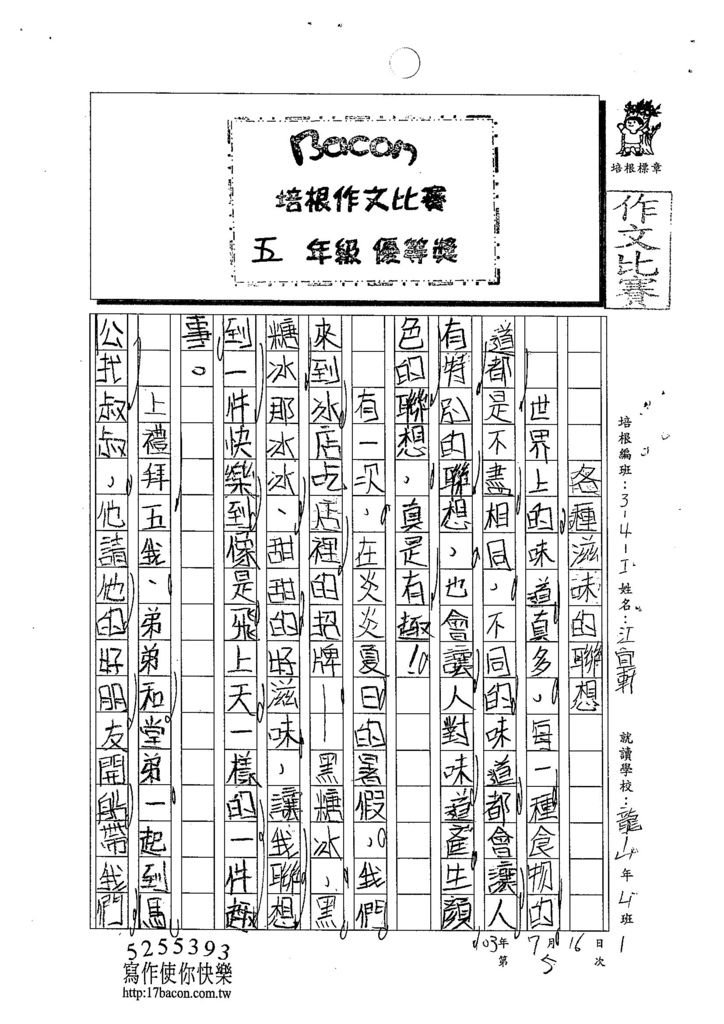 Bacon
培根作文比賽
五 年級 優等獎
培根標章
作文比賽
培根編班：3-4-I 姓名：江宜軒 就讀學校：龍 4 年 4 班 1
各種滋味的聯想
世界上的味道真多，每一種食物的
道都是不盡相同，不同的味道都會讓人
有特別的聯想，也會讓人對味道產生顏
色的聯想，真是有趣！
有一次，在炎炎夏日的暑假，我們
來到冰店吃店裡的招牌——黑糖冰，黑
糖冰那冰冰、甜甜的好滋味，讓我聯想
到一件快樂到像是飛上天一樣的一件趣
事。
上禮拜五我、弟弟和堂弟一起到馬
公找叔叔，他請他的好朋友開船帶我們
103年 7月 16日
第 5 次
5255393
寫作使你快樂
http:17bacon.com.tw